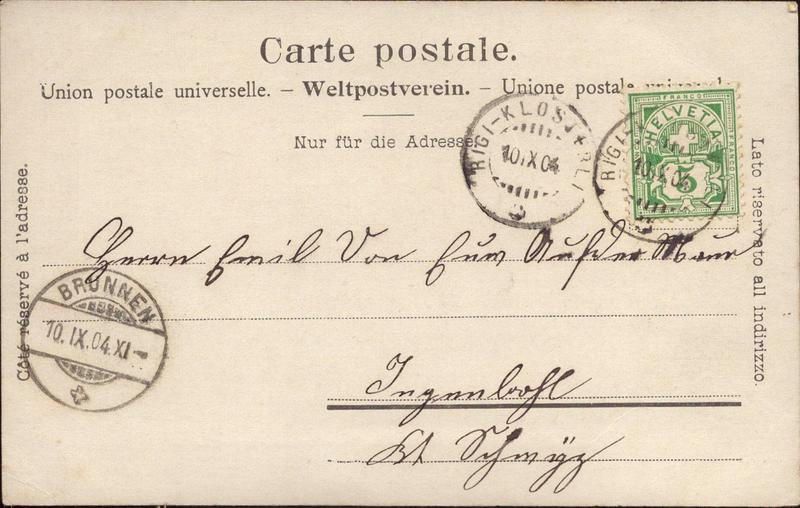 Carte postale.
Union postale universelle. – Weltpostverein. – Unione postale universale
Nur für die Adresse
RIGI-KLOSTERLI
10.IX.04
RIGI-
10.IX.04
FRANCO
HELVETIA
FRANCO
FRANCO
5
Côté réservé à l'adresse.
Lato riservato all indirizzo.
Herrn Emil Von Auf der Maur
BRUNNEN
10.IX.04.XI-
Ingenbohl
Kt Schwyz